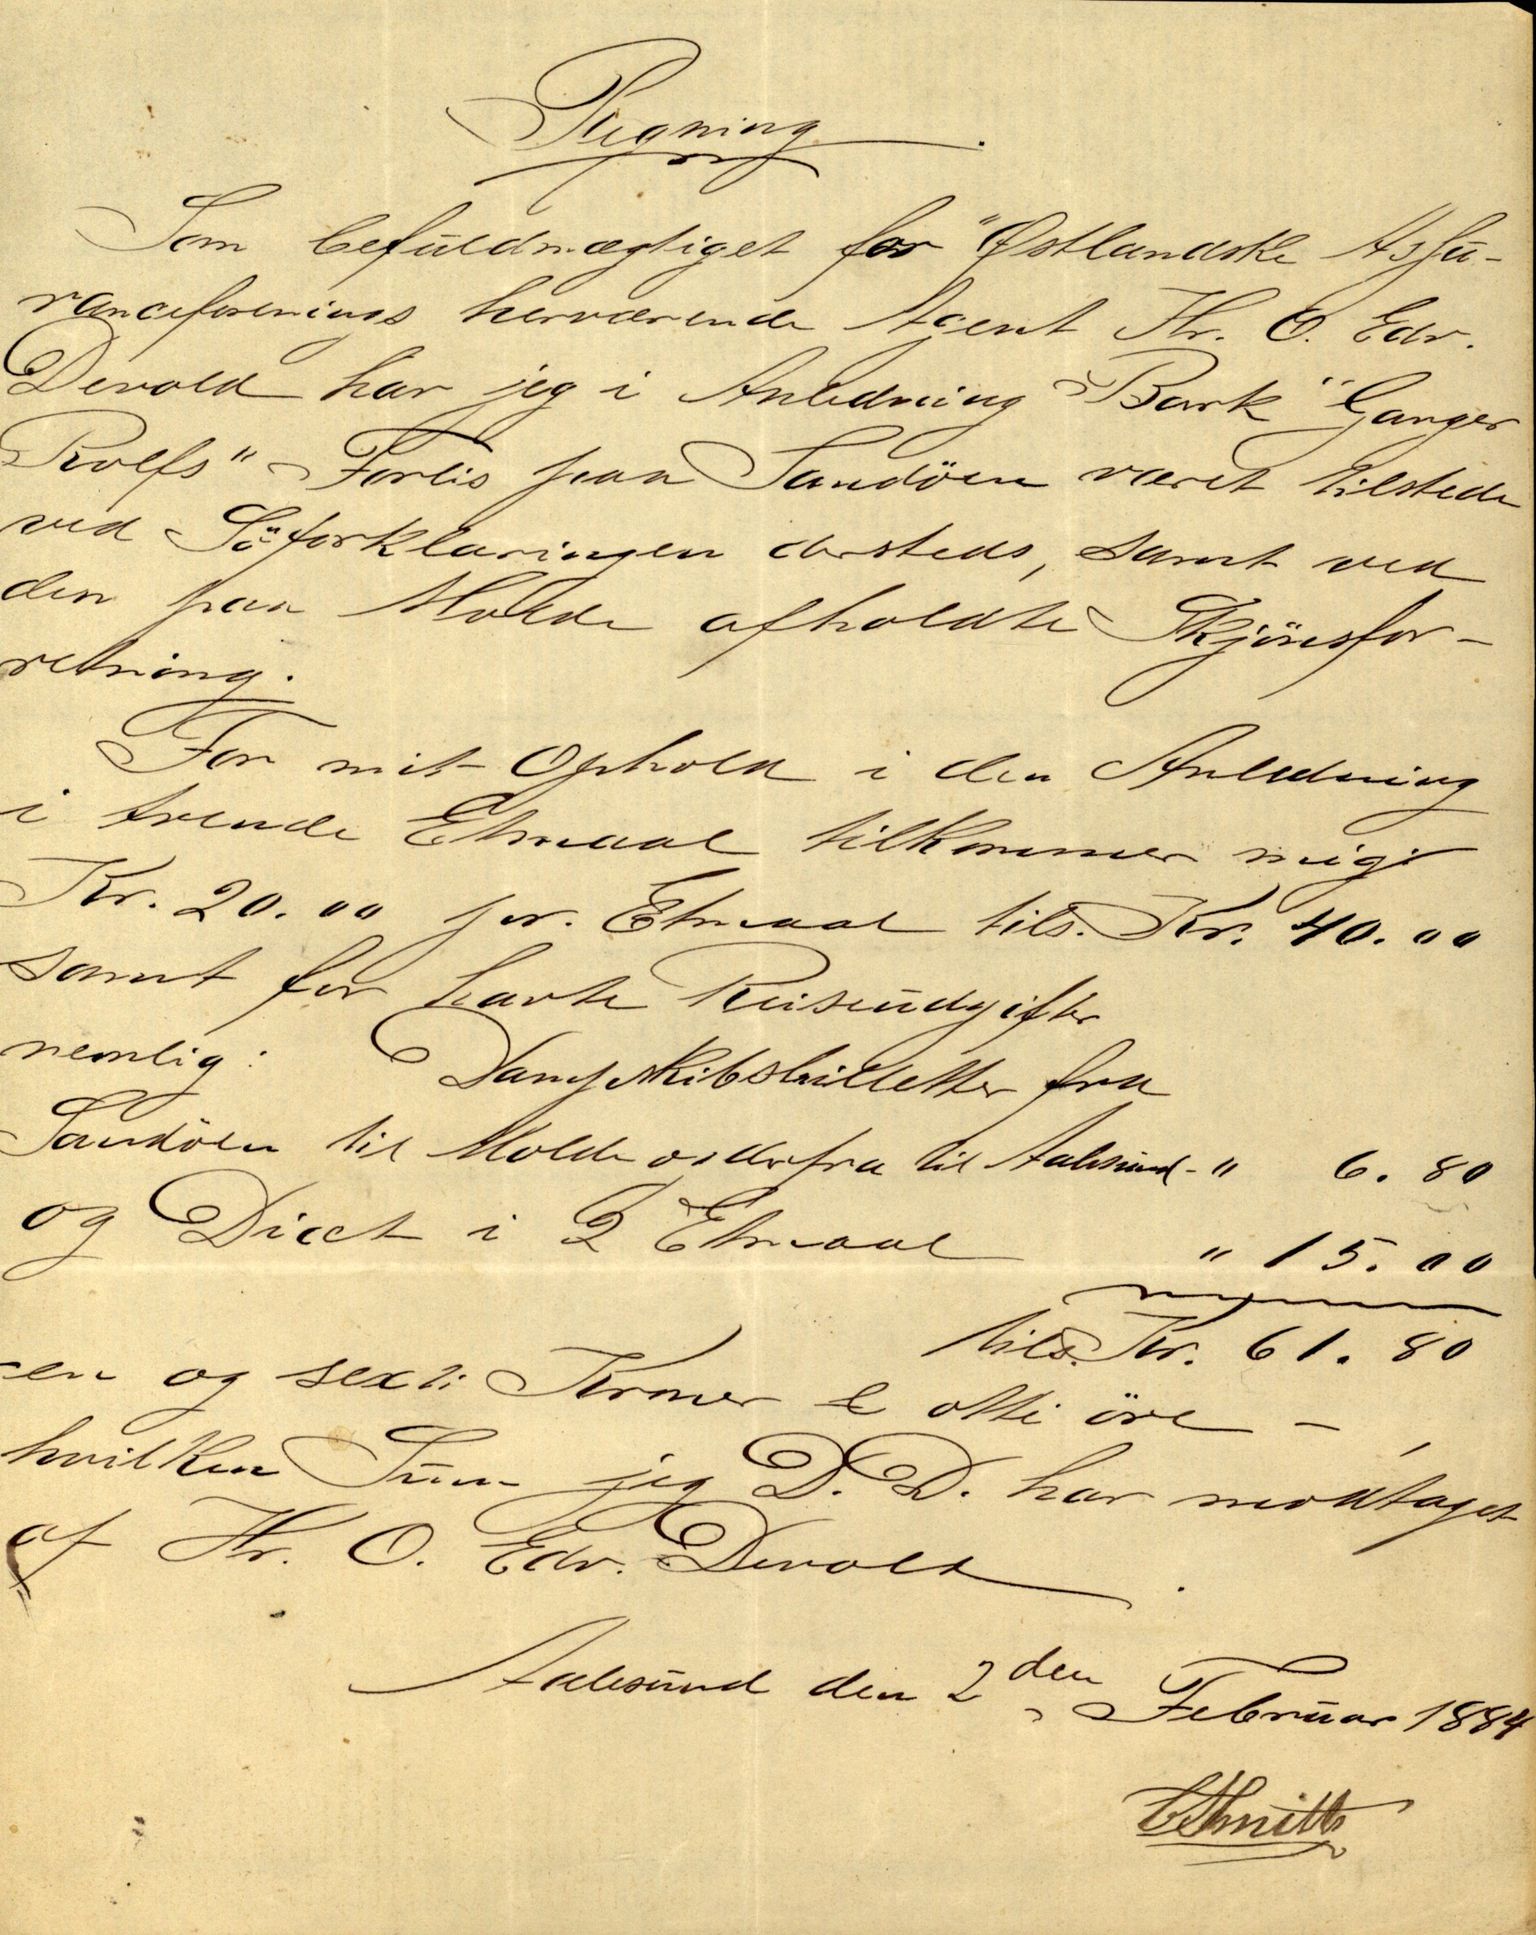 Regning.
Som befuldmægtiget for "Østlandske Assu-
ranceforenings herværende Agent Hr. O. Edv.
Devold har jeg i Anledning Bark "Ganger
Rolfs" Forlis paa Sandöen været tilstede
ved Söforklaringen dersteds, samt ved
den paa Molde afholdte Skjönsfor-
retning.
For mit Ophold i den Anledning
i tvende Etmaal tilkommer mig
Kr. 20.00 pr. Etmaal tils. Kr. 40.00
samt for havte Reiseudgifter
nemlig: Dampskibsbilletter fra
Sandöen til Molde o. derfra til Aalesund - " 6.80
og Diæt i 2 Etmaal " 15.00
tils. Kr. 61.80
en og sexti Kroner & otti öre -,
hvilken Sum jeg D.D. har modtaget
af Hr. O. Edv. Devold.
Aalesund den 2den Februar 1884